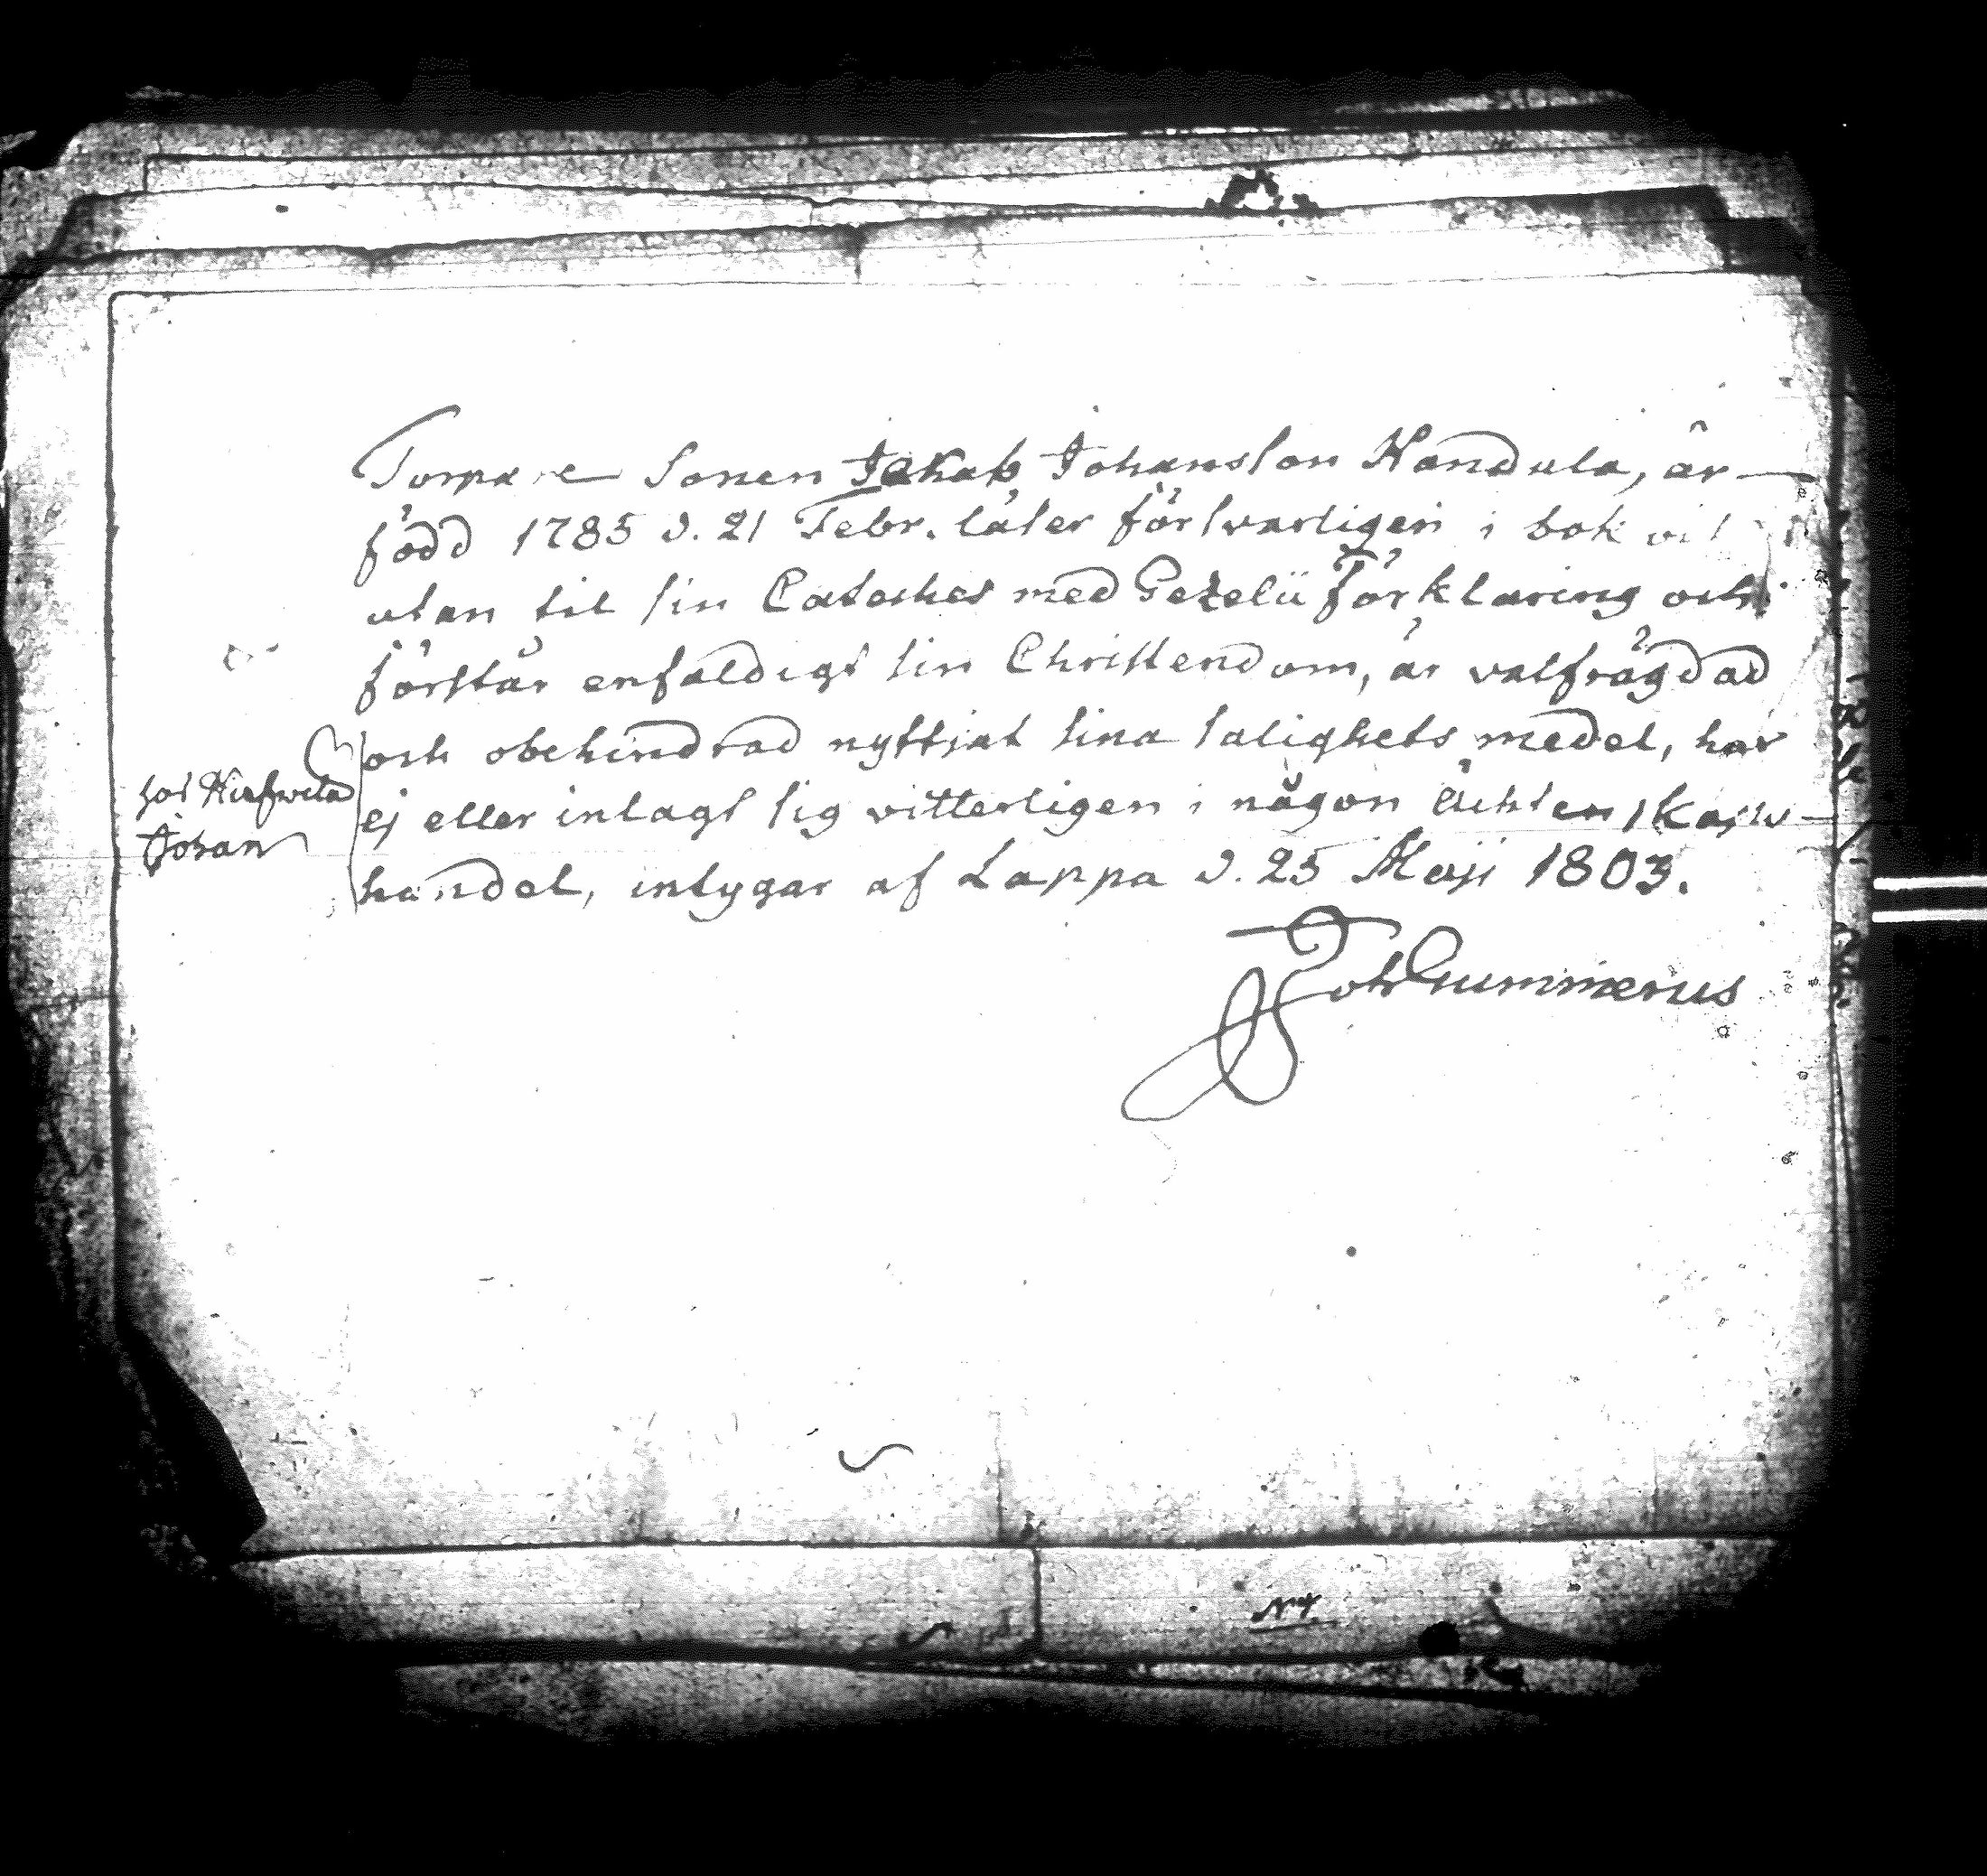 Torpare Sonen Jakob Johansson Kandula, är
född 1785 d. 21 Febr. läser försvarligen i bok
utan til sin Cateches med Gezelii Förklaring och
förstår enfaldigt sin Christendom, är välfrägdad
och obehindrad nyttjat sina salighets medel, har
hos
Johan
ej eller inlagt sig vitterligen i någon Ächtenskaps
handel, intygar af Lappa d. 25 Maji 1803.
Joh Gummerus